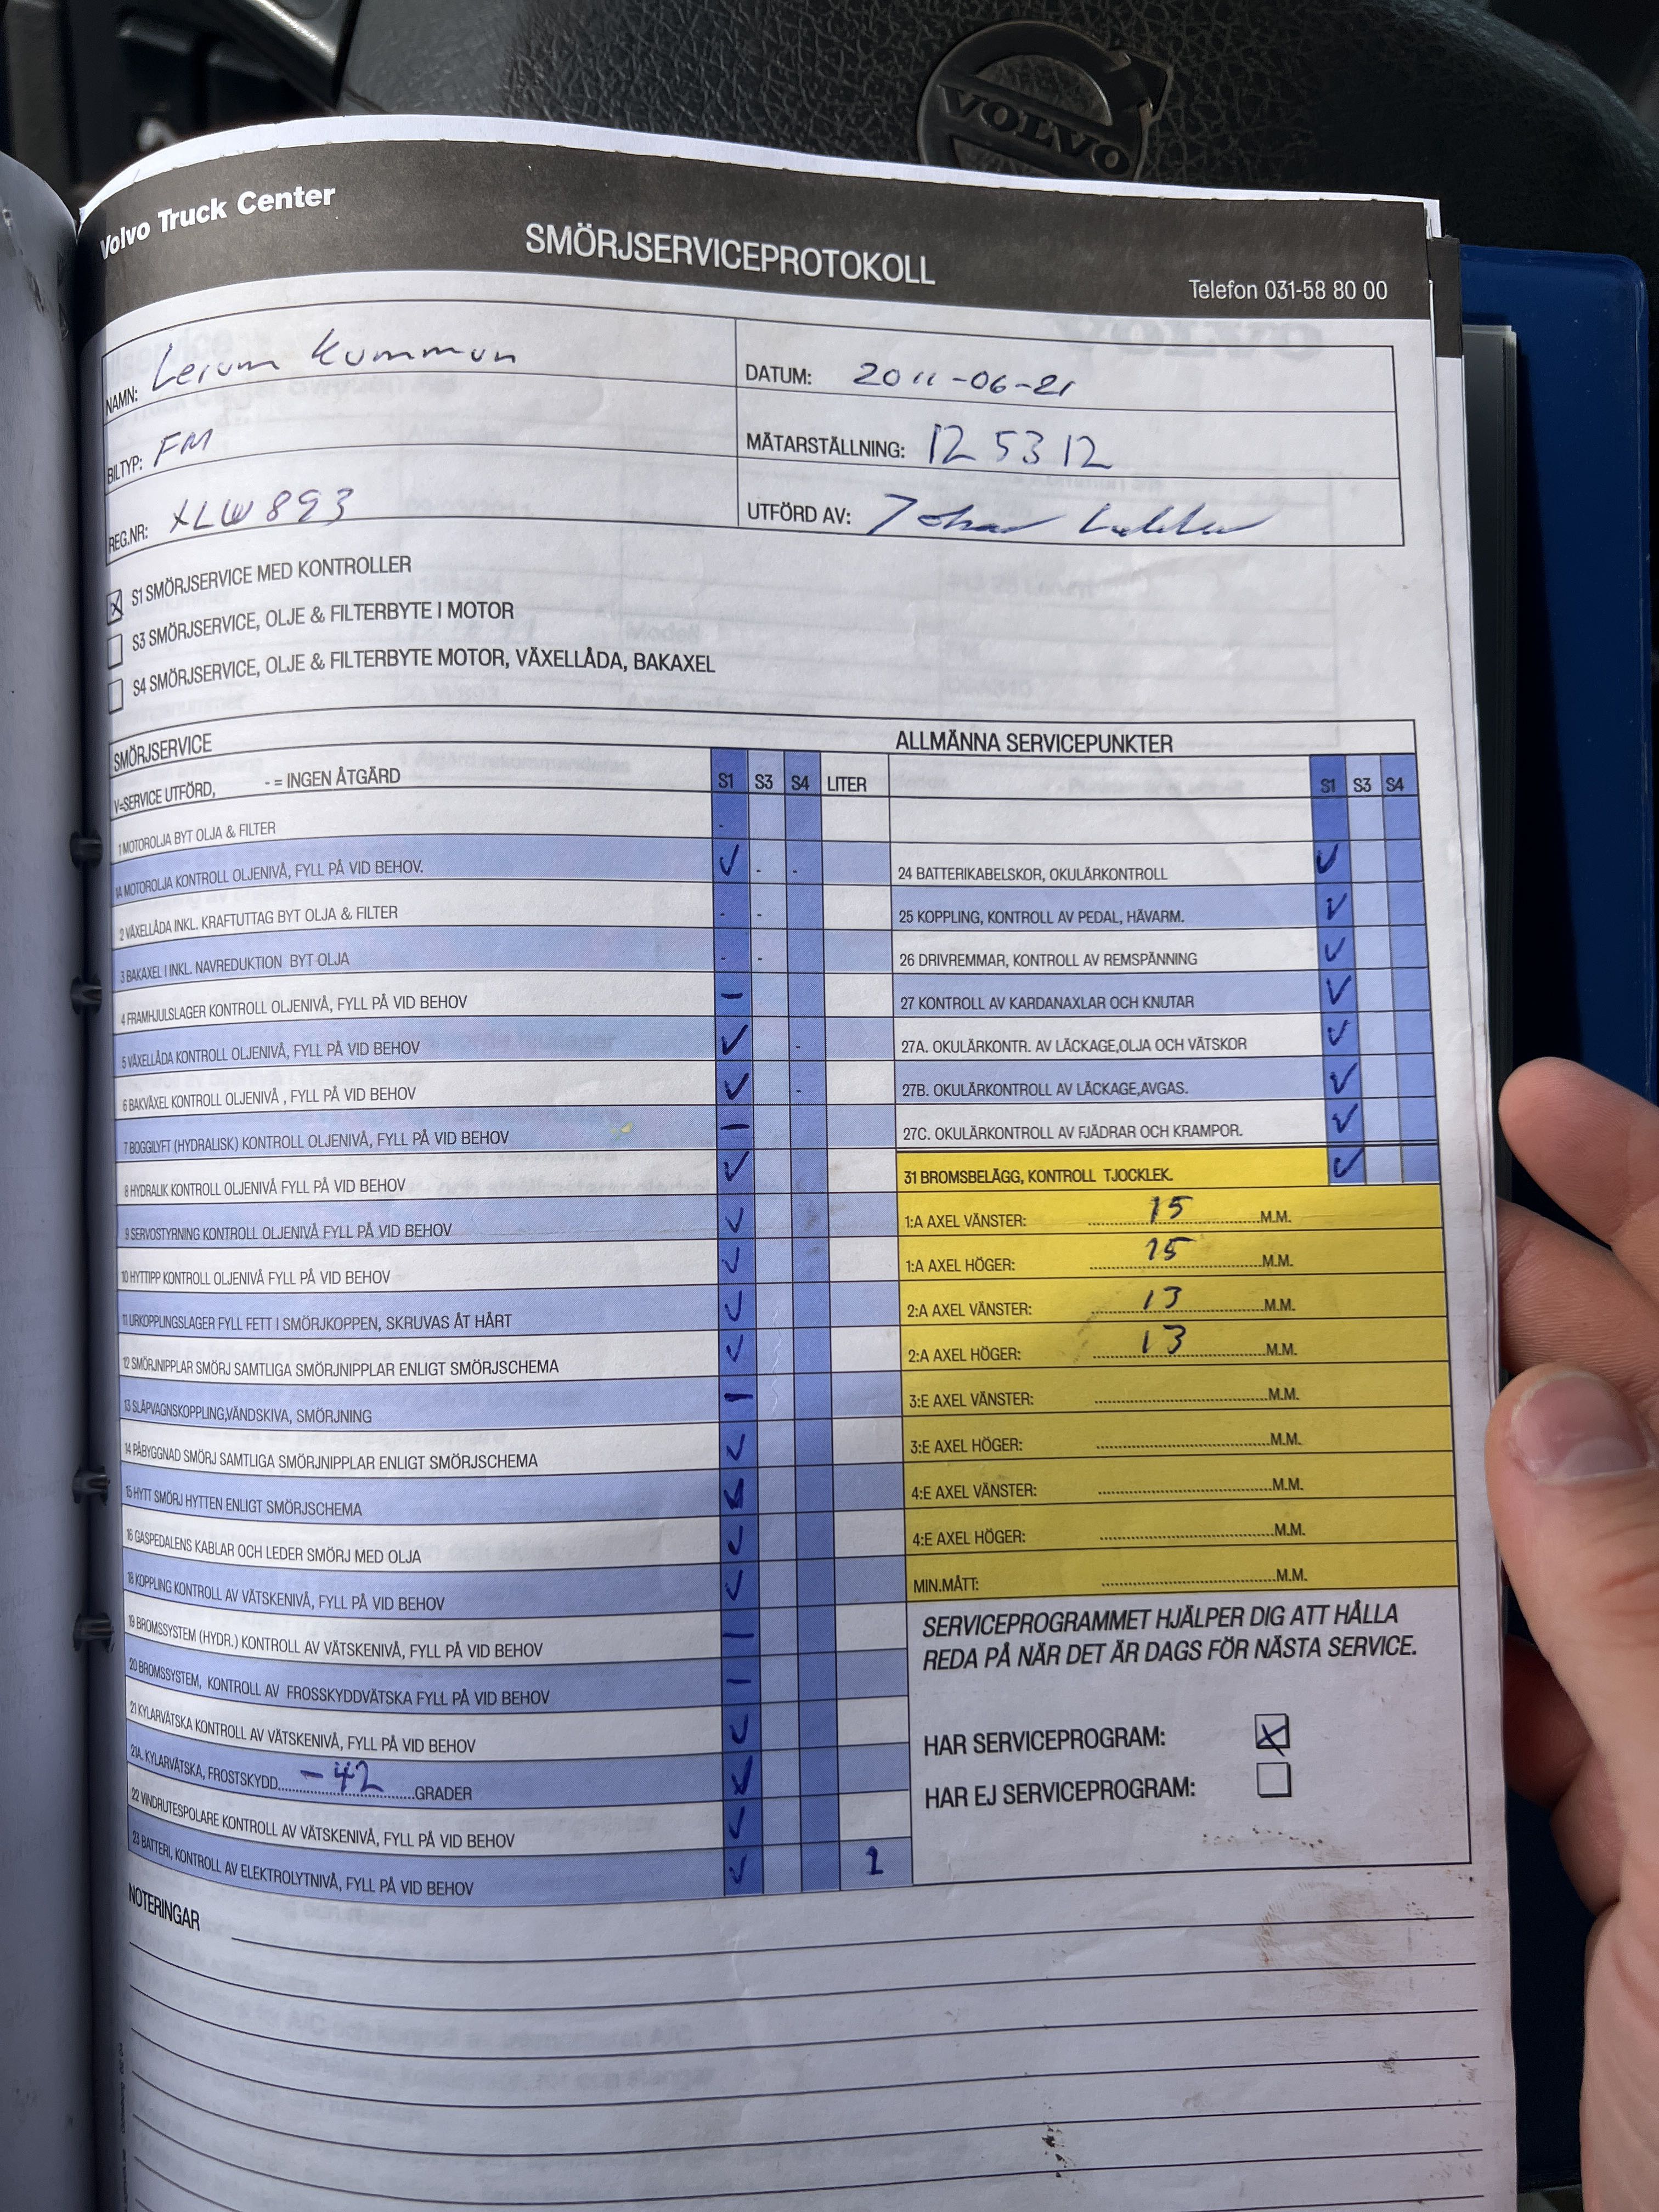 VOLVO
Volvo Truck Center
SMÖRJSERVICEPROTOKOLL
Telefon 031-58 80 00
NAMN: Lerum Kommun
DATUM: 2011-06-21
BILTYP: FM
MÄTARSTÄLLNING: 125312
REG.NR: XLW893
UTFÖRD AV: Johan
S1 SMÖRJSERVICE MED KONTROLLER
S3 SMÖRJSERVICE, OLJE & FILTERBYTE I MOTOR
S4 SMÖRJSERVICE, OLJE & FILTERBYTE MOTOR, VÄXELLÅDA, BAKAXEL
SMÖRJSERVICE
V=SERVICE UTFÖRD, - = INGEN ÅTGÄRD
S1 S3 S4 LITER
1 MOTOROLJA BYT OLJA & FILTER -
1A MOTOROLJA KONTROLL OLJENIVÅ, FYLL PÅ VID BEHOV. ✓ - -
2 VÄXELLÅDA INKL. KRAFTUTTAG BYT OLJA & FILTER - -
3 BAKAXEL I INKL. NAVREDUKTION BYT OLJA - -
4 FRAMHJULSLAGER KONTROLL OLJENIVÅ, FYLL PÅ VID BEHOV –
5 VÄXELLÅDA KONTROLL OLJENIVÅ, FYLL PÅ VID BEHOV ✓ -
6 BAKVÄXEL KONTROLL OLJENIVÅ , FYLL PÅ VID BEHOV ✓ -
7 BOGGILYFT (HYDRALISK) KONTROLL OLJENIVÅ, FYLL PÅ VID BEHOV –
8 HYDRALIK KONTROLL OLJENIVÅ FYLL PÅ VID BEHOV ✓
9 SERVOSTYRNING KONTROLL OLJENIVÅ FYLL PÅ VID BEHOV ✓
10 HYTTIPP KONTROLL OLJENIVÅ FYLL PÅ VID BEHOV ✓
11 URKOPPLINGSLAGER FYLL FETT I SMÖRJKOPPEN, SKRUVAS ÅT HÅRT ✓
12 SMÖRJNIPPLAR SMÖRJ SAMTLIGA SMÖRJNIPPLAR ENLIGT SMÖRJSCHEMA ✓
13 SLÄPVAGNSKOPPLING,VÄNDSKIVA, SMÖRJNING –
14 PÅBYGGNAD SMÖRJ SAMTLIGA SMÖRJNIPPLAR ENLIGT SMÖRJSCHEMA ✓
15 HYTT SMÖRJ HYTTEN ENLIGT SMÖRJSCHEMA ✓
16 GASPEDALENS KABLAR OCH LEDER SMÖRJ MED OLJA ✓
18 KOPPLING KONTROLL AV VÄTSKENIVÅ, FYLL PÅ VID BEHOV ✓
19 BROMSSYSTEM (HYDR.) KONTROLL AV VÄTSKENIVÅ, FYLL PÅ VID BEHOV –
20 BROMSSYSTEM, KONTROLL AV FROSSKYDDVÄTSKA FYLL PÅ VID BEHOV –
21 KYLARVÄTSKA KONTROLL AV VÄTSKENIVÅ, FYLL PÅ VID BEHOV ✓
21A. KYLARVÄTSKA, FROSTSKYDD.....-42.....GRADER ✓
22 VINDRUTESPOLARE KONTROLL AV VÄTSKENIVÅ, FYLL PÅ VID BEHOV ✓
23 BATTERI, KONTROLL AV ELEKTROLYTNIVÅ, FYLL PÅ VID BEHOV ✓ 1
ALLMÄNNA SERVICEPUNKTER
S1 S3 S4
24 BATTERIKABELSKOR, OKULÄRKONTROLL ✓
25 KOPPLING, KONTROLL AV PEDAL, HÄVARM. ✓
26 DRIVREMMAR, KONTROLL AV REMSPÄNNING ✓
27 KONTROLL AV KARDANAXLAR OCH KNUTAR ✓
27A. OKULÄRKONTR. AV LÄCKAGE,OLJA OCH VÄTSKOR ✓
27B. OKULÄRKONTROLL AV LÄCKAGE,AVGAS. ✓
27C. OKULÄRKONTROLL AV FJÄDRAR OCH KRAMPOR. ✓
31 BROMSBELÄGG, KONTROLL TJOCKLEK. ✓
1:A AXEL VÄNSTER: 15 M.M.
1:A AXEL HÖGER: 15 M.M.
2:A AXEL VÄNSTER: 13 M.M.
2:A AXEL HÖGER: 13 M.M.
3:E AXEL VÄNSTER: M.M.
3:E AXEL HÖGER: M.M.
4:E AXEL VÄNSTER: M.M.
4:E AXEL HÖGER: M.M.
MIN.MÅTT: M.M.
SERVICEPROGRAMMET HJÄLPER DIG ATT HÅLLA
REDA PÅ NÄR DET ÄR DAGS FÖR NÄSTA SERVICE.
HAR SERVICEPROGRAM: X
HAR EJ SERVICEPROGRAM:
NOTERINGAR